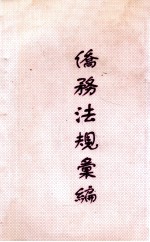 僑務法規彙編